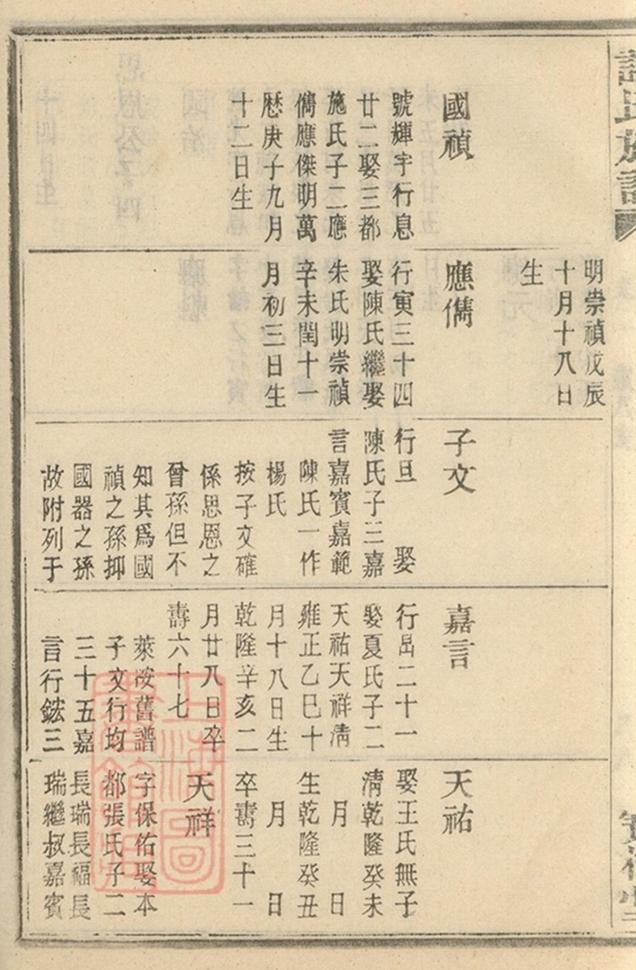 國禎
號輝宇行息
廿二娶三都
施氏子二應
儁應傑明萬
歷庚子九月
十二日生
明崇禎戊辰
十月十八日
生
應儁
行寅三十四
娶陳氏繼娶
朱氏明崇禎
辛未閏十一
月初三日生
子文
行旦 娶
陳氏子三嘉
言嘉賓嘉範
陳氏一作
楊氏
按子文確
係思恩之
曾孫但不
知其爲國
禎之孫抑
國器之孫
故附列于
嘉言
行嵒二十一
娶夏氏子二
天祐天祥淸
雍正乙巳十
月十八日生
乾隆辛亥二
月廿八日卒
壽六十七
萊按舊譜
子文行均
三十五嘉
言行鋐三
天祐
娶王氏無子
淸乾隆癸未
月 日
生乾隆癸丑
月 日
卒壽三十一
天祥
字保佑娶本
都張氏子二
長瑞長福長
瑞繼叔嘉賓